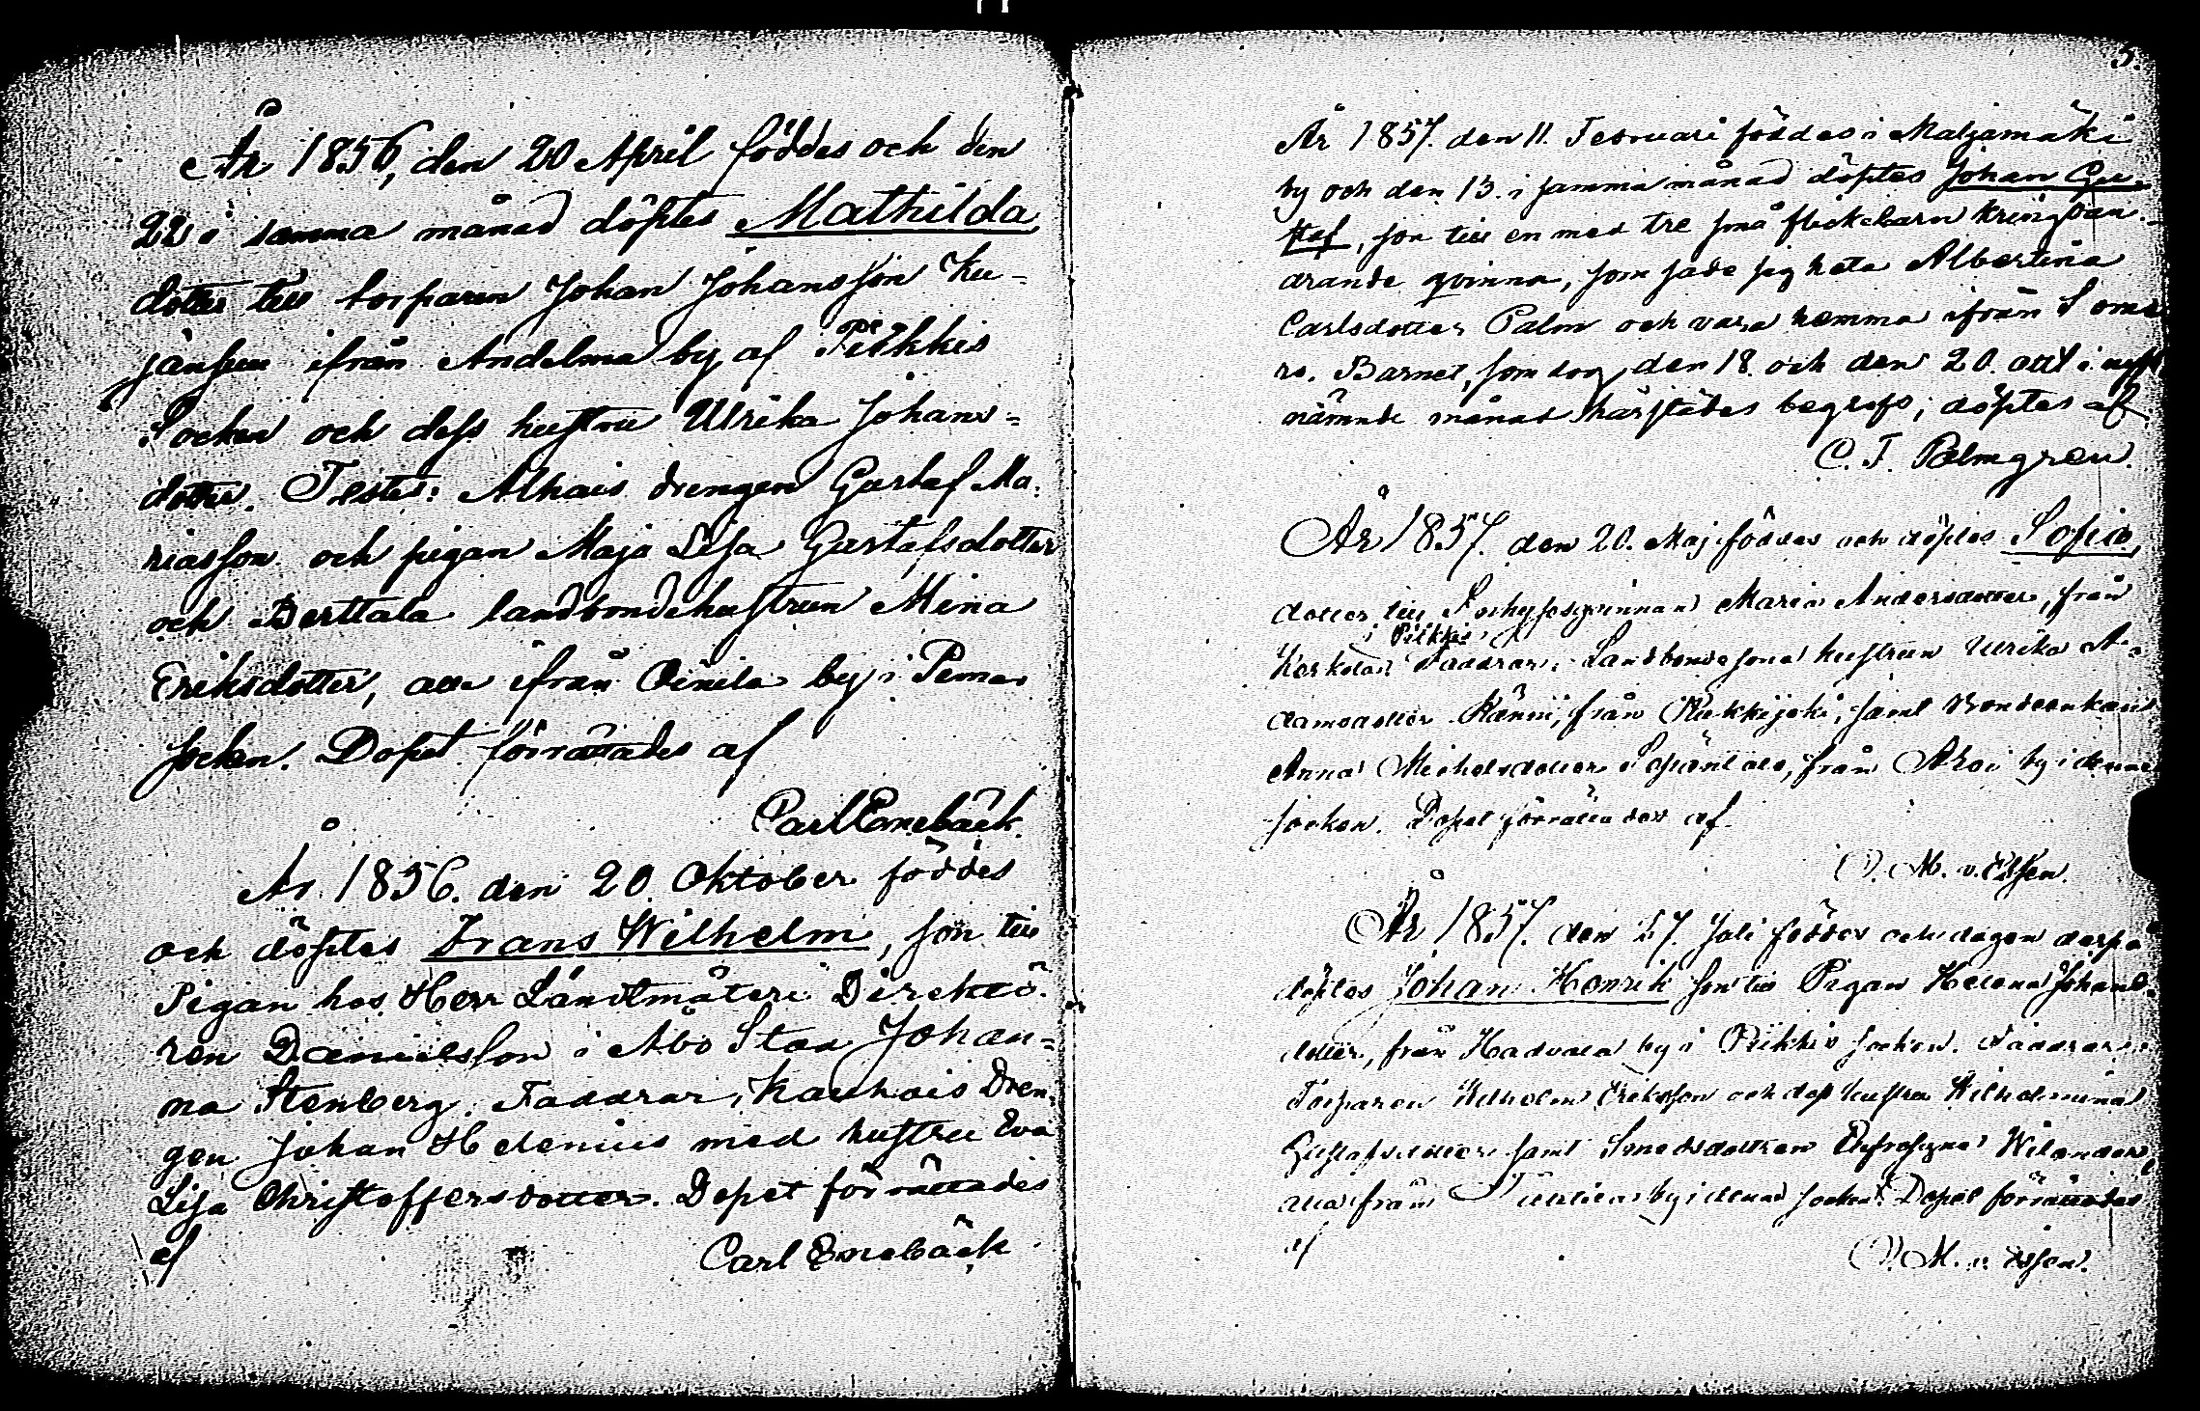 År 1856, den 20 April föddes och den
22 i samma månad döptes Mathilda
dotter till torparen Johan Johansson Ku-
jänsuu ifrån Andelma by af Piikkis
Socken och dess hustru Ulrika Johans-
dotter. Testes: Alhais drengen Gustaf Ma-
riasson och pigan Maja Lisa Gustafsdotter
och Berttala landbondehustrun Mina
Eriksdotter, alla ifrån Oinila by i Pemar
socken. Dopet förrättades af
Carl Enebäck.
År 1856. den 20. Oktober föddes
och döptes Frans Wilhelm, son till
Pigan hos Herr Landtmäteri Direktö-
ren Danielsson i Åbo Stad Johan-
na Stenberg. Faddrar, Kauhais Dren-
gen Johan Helenius med hustru Eva
Lisa Christoffersdotter. Dopet förrättades
af
Carl Enebäck
5.
År 1857. den 11. Februari föddes i Maljamäki
by och den 13. i samma månad döptes Johan Gu-
staf, son till en med tre små flickebarn kringvan-
drande qvinna, som sade sig heta Albertina
Carlsdotter Palm och vara hemma ifrån Some-
ro. Barnet, som dog den 18. och den 20. allt i
nämnde månad härstädes begrofs, döptes af
C. F. Palmgren.
År 1857. den 20. Maj föddes och döptes Sofia
dotter till Inhysesqvinnan Maria Andersdotter, från
i Piikkis
Koskola. Faddrar: Landbondesone hustrun Ulrika A-
damsdotter från samt Bondeenkan
Anna Michelsdotter från by i denna
socken. Dopet förrättades af
O. M. v. Essen.
År 1857. den 27. Juli föddes och dagen derpå
döptes Johan Henrik son till Pigan Helena Johans-
dotter, från Hadvala by i Piikkis socken. Faddrar:
Torparen Wilhelm Eriksson och dess hustru Wilhelmina
Gustafsdotter samt Smedsdottren Eufrosyna Wilander,
alla från by i denna socken. Dopet förrättades
af
O. M. v. Essen.